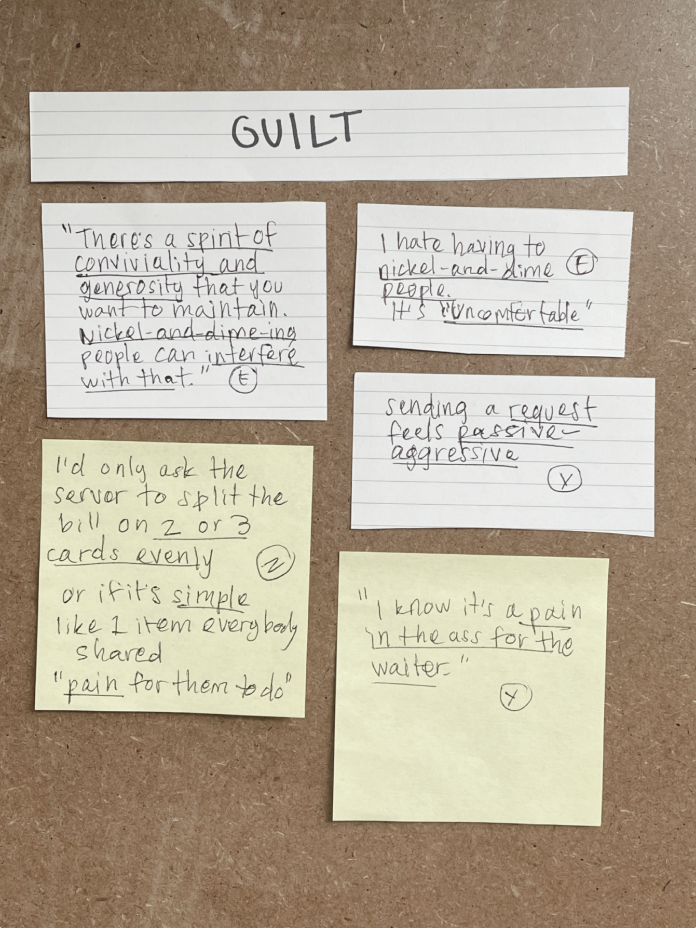 GUILT
"There's a spirit of
conviviality and
generosity that you
want to maintain.
Nickel-and-dime-ing
people can interfere
with that." E
I hate having to
nickel-and-dime E
people.
"It's "uncomfortable"
sending a request
feels passive-
aggressive
Y
I'd only ask the
server to split the
bill on 2 or 3
cards evenly Z
or if it's simple
like 1 item everybody
shared
"pain for them to do"
"I know it's a pain
in the ass for the
waiter."
Y